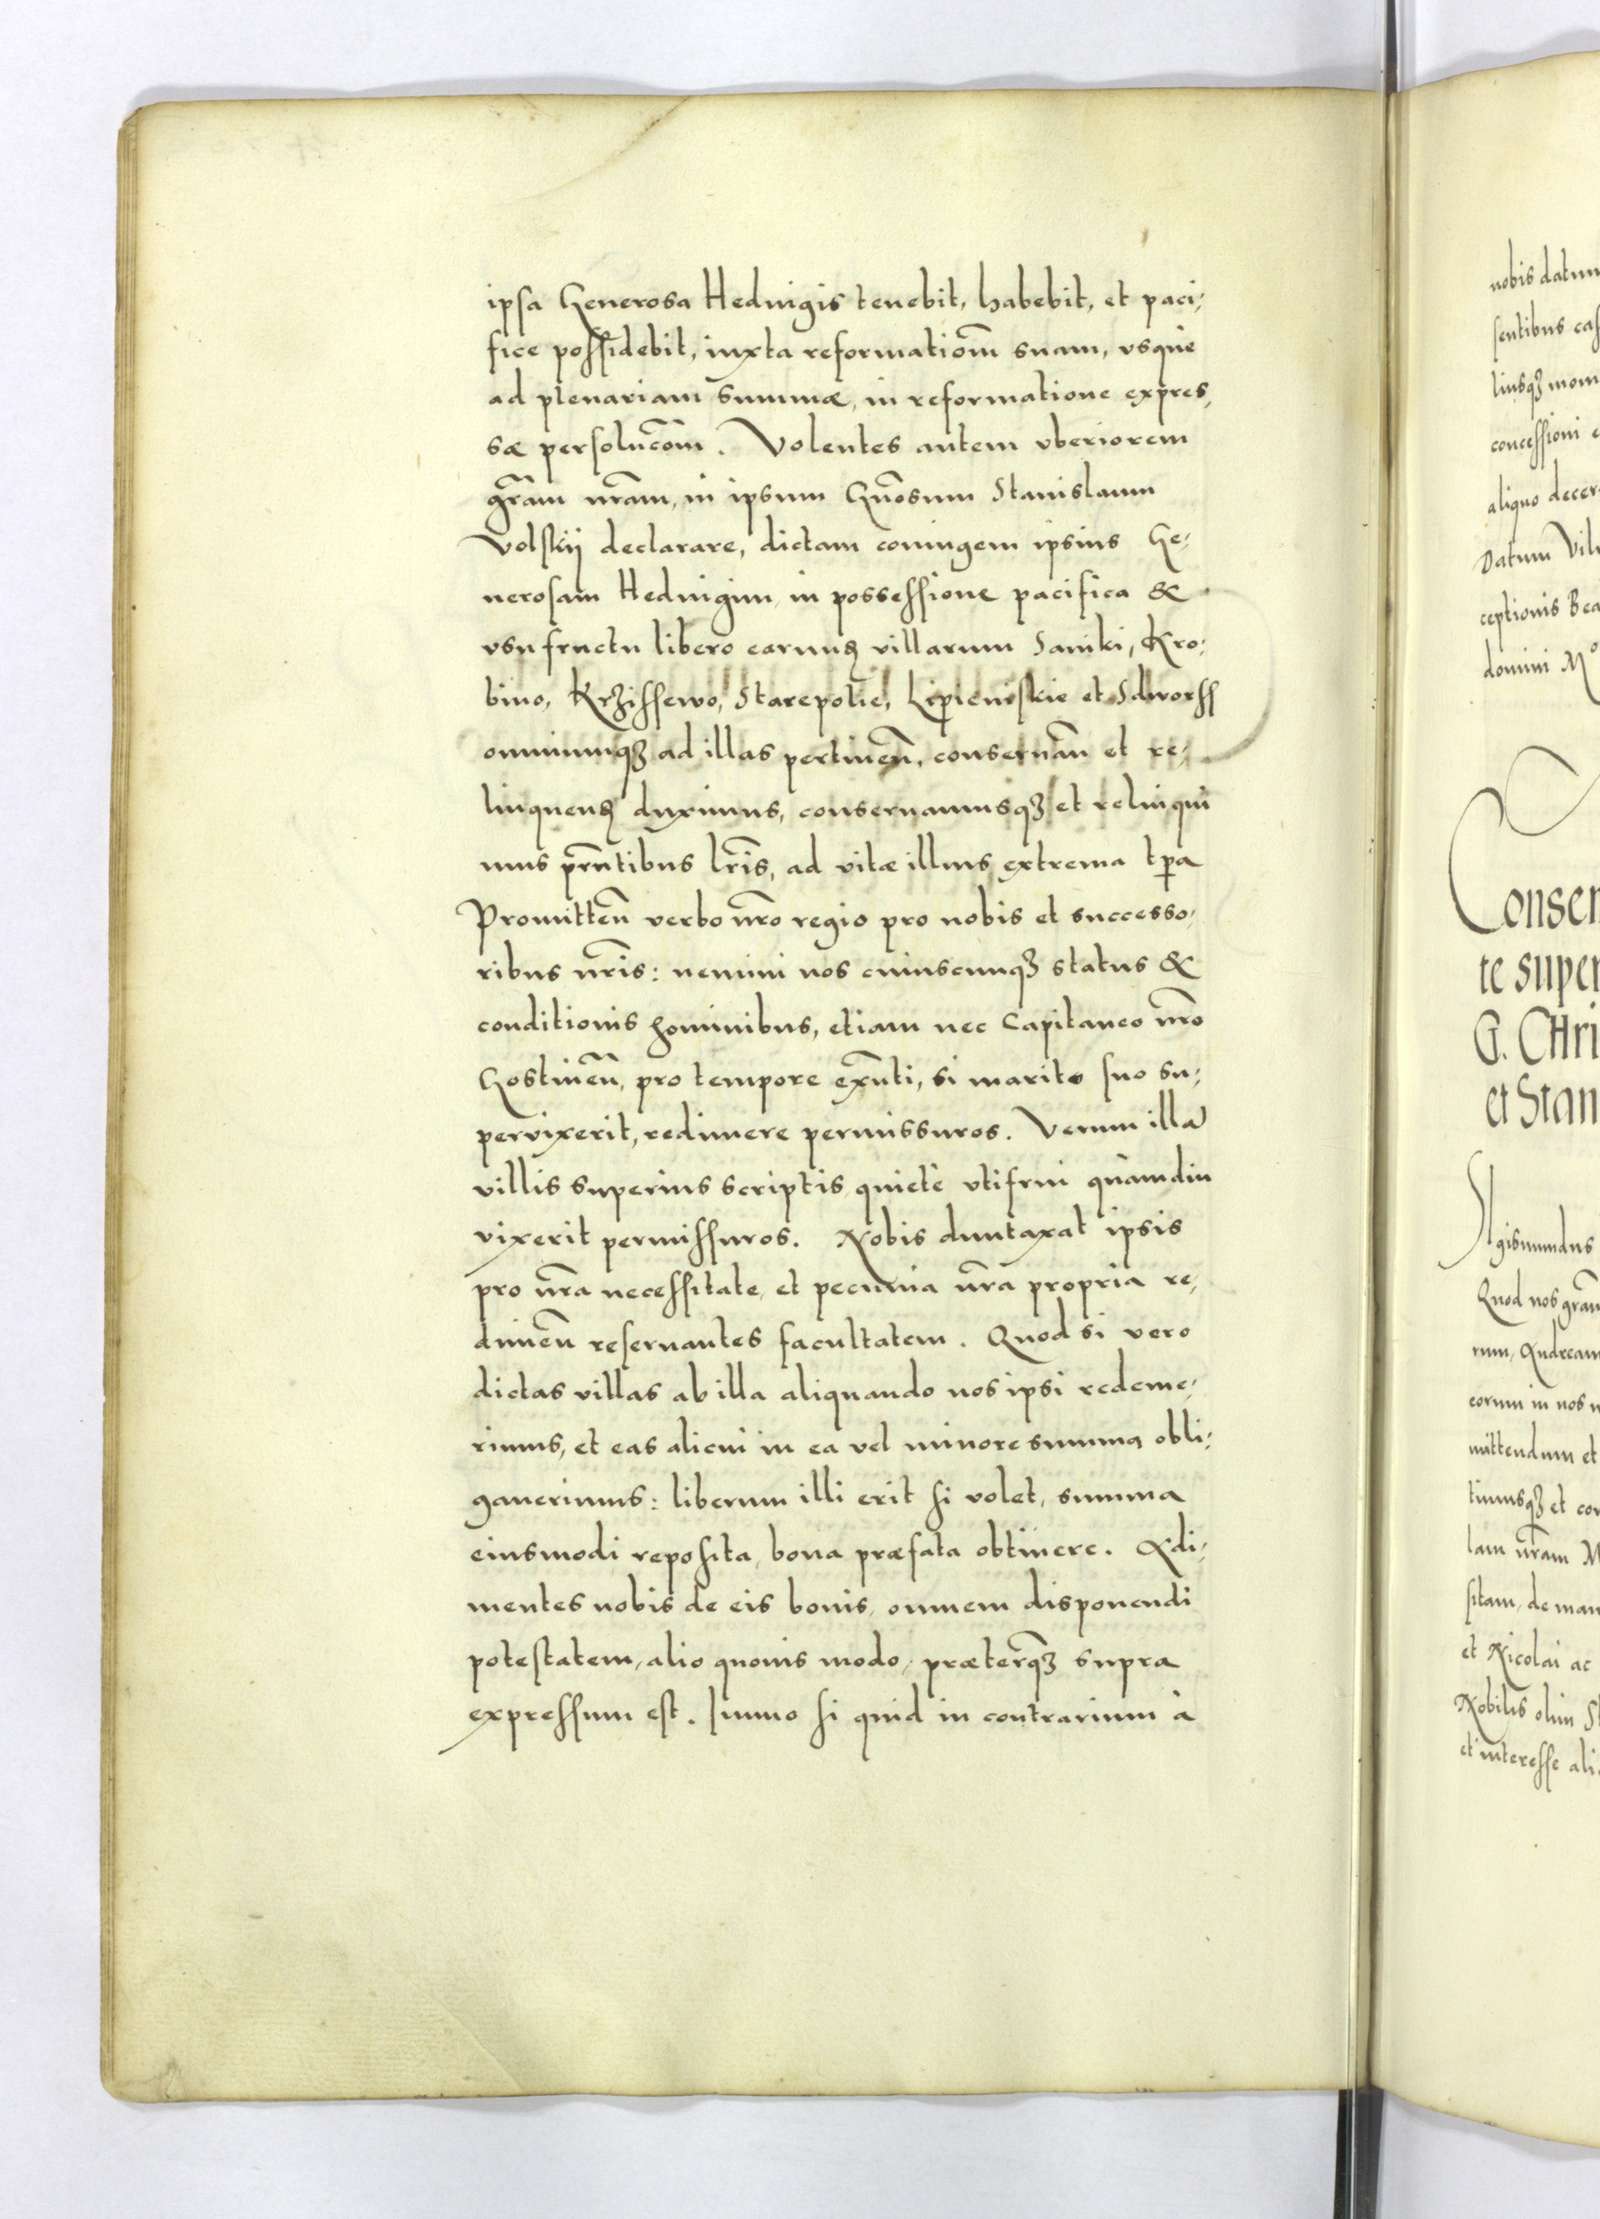 ipsa Generosa Hedvigis tenebit, habebit, et paci-
fice possidebit, iuxta reformatiõm suam, vsque
ad plenariam summæ, in reformatione expres-
sæ persolucõm. Volentes autem vberiorem
grãm nrãm, in ipsum Gnõsum Stanislaum
Volskij declarare, dictam coniugem ipsius Ge-
nerosam Hedvigim, in possessione pacifica &
vsufructu libero earumd villarum Saniki, Kro-
bino, Krzissewo, Starepolie, Lipieniskie et Sdworss
omniumqꝫ ad illas pertineñ, conseruañ et re-
linquend duximus, conseruamusqꝫ et relinqui
mus prñtibus lrĩs, ad vitæ illius extrema tp̃a
Promitteñ verbo nrõ regio pro nobis et successo-
ribus nrĩs: nemini nos cuiuscunqꝫ status &
conditionis hominibus, etiam nec Capitaneo nrõ
Gostineñ, pro tempore exñti, si marito suo su-
pervixerit, redimere permissuros. Verum illã
villis superius scriptis quietè vtifrui quamdiu
vixerit permissuros. Nobis duntaxat ipsis
pro nrã necessitate, et pecunia nrã propria re-
dimeñ reseruantes facultatem. Quod si vero
dictas villas ab illa aliquando nos ipsi redeme-
rimus, et eas alicui in ea vel minore summa obli-
gauerimus: liberum illi erit si volet, summa
eiusmodi reposita, bona præfata obtinere. Adi-
mentes nobis de eis bonis, omnem disponendi
potestatem, alio quouis modo, præterqꝫ supra
expressum est. Immo si quid in contrarium à
nobis datum
sentibus cas
liusqꝫ mom
concessioni e
aliquo decer
Datum Viln
ceptionis Bea
domini Mº
Consen
te super
G. CHri
et Stan
Sigismundus
Quod nos grãm
rum, Andream
eorum in nos
mittendum et
timusqꝫ et con
lam nrãm M
sitam, de man
et Nicolai ac
Nobilis olim St
et interesse ali